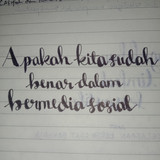 Apakah kita sudah
benar dalam
bermedia sosial